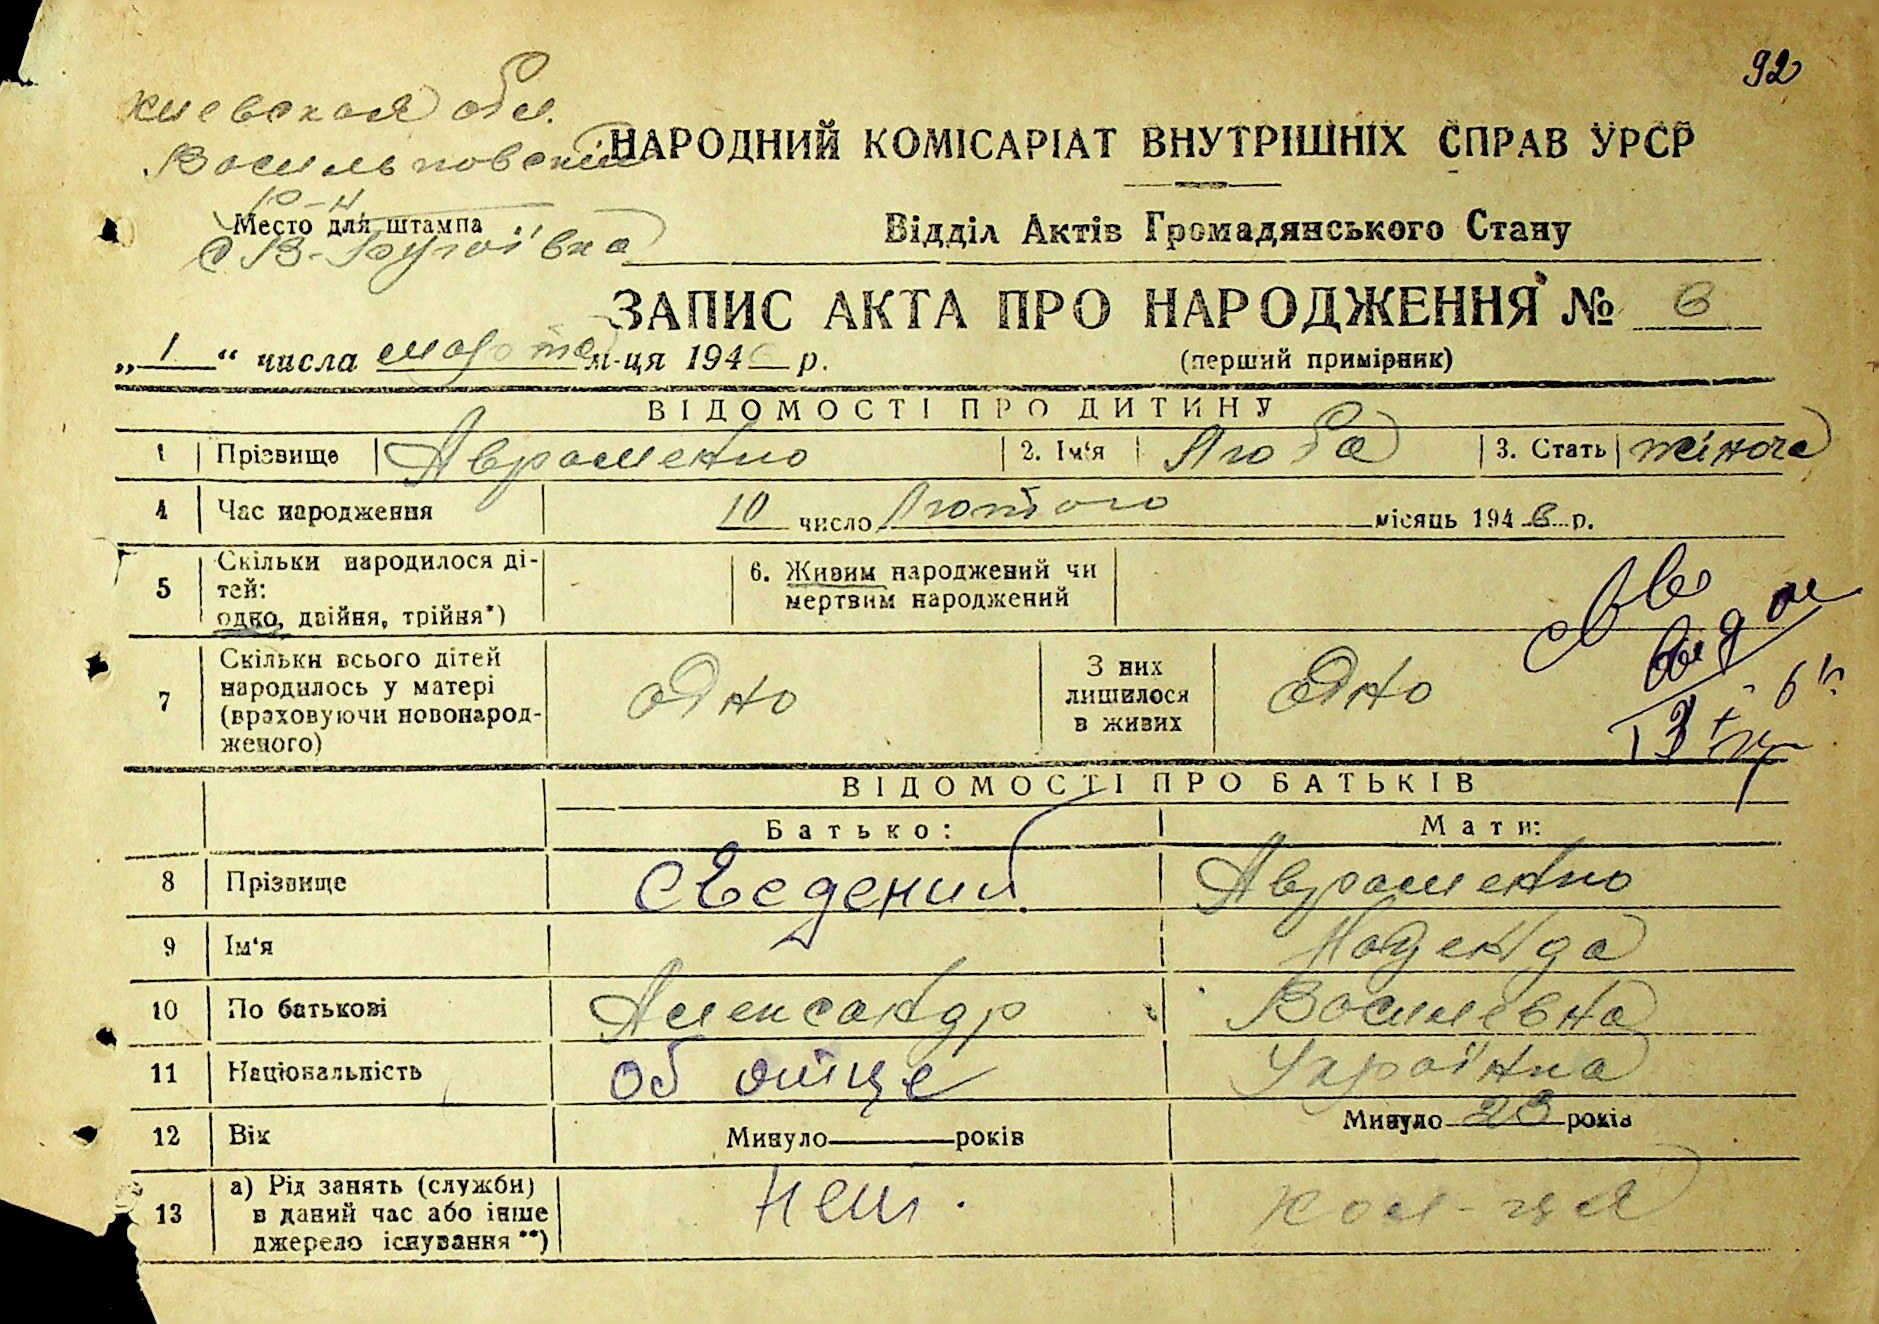 92
Киевская обл.
Васильковский
р-н
Место для штампа
с В-Бугаївка
НАРОДНИЙ КОМІСАРІАТ ВНУТРІШНІХ СПРАВ УРСР
Відділ Актів Громадянського Стану
ЗАПИС АКТА ПРО НАРОДЖЕННЯ № 6
„1“ числа марта м-ця 1946 р.
(перший примірник)
ВІДОМОСТІ ПРО ДИТИНУ
1 Прізвище Авраменко 2. Ім‘я Люба 3. Стать жіноча
4 Час народження 10 число Лютого місяць 1946 р.
5 Скільки народилося ді-
тей:
одно, двійня, трійня*)
6. Живим народжений чи
мертвим народжений
7 Скільки всього дітей
народилось у матері
(враховуючи новонарод-
женого)
одно
З них
лишилося
в живих
одно
ВІДОМОСТІ ПРО БАТЬКІВ
Батько: Мати:
8 Прізвище Сведений Авраменко
9 Ім‘я Надежда
10 По батькові Александр Василевна
11 Національність об отце Українка
12 Вік Минуло років Минуло 23 років
13 а) Рід занять (служби)
в даний час або інше
джерело існування **)
нет. кол-ця